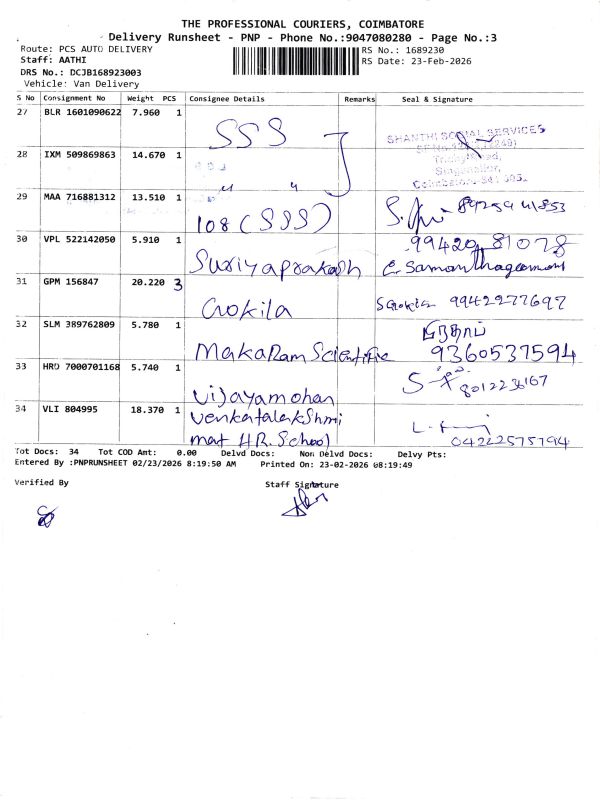 THE PROFESSIONAL COURIERS, COIMBATORE
Delivery Runsheet - PNP - Phone No.:9047080280 - Page No.:3
Route: PCS AUTO DELIVERY RS No.: 1689230
Staff: AATHI RS Date: 23-Feb-2026
DRS No.: DCJB168923003
Vehicle: Van Delivery
S No Consignment No Weight PCS Consignee Details Remarks Seal & Signature
27 BLR 1601090622 7.960 1 SSS SHANTHI SOCIAL SERVICES
28 IXM 509869863 14.670 1 " "
Singanallur,
29 MAA 716881312 13.510 1 108 (SSS) 89254 41853
30 VPL 522142050 5.910 1 Suriyaprakash 99420 81078
31 GPM 156847 20.220 3 Gokila 9942977697
32 SLM 389762809 5.780 1 Makaram Scientific 9360537594
33 HRO 7000701168 5.740 1 Vijayamohan 8012236167
34 VLI 804995 18.370 1 Venkatalakshmi
mat HR. School 04222575794
Tot Docs: 34 Tot COD Amt: 0.00 Delvd Docs: Non Delvd Docs: Delvy Pts:
Entered By :PNPRUNSHEET 02/23/2026 8:19:50 AM Printed On: 23-02-2026 08:19:49
Verified By Staff Signature